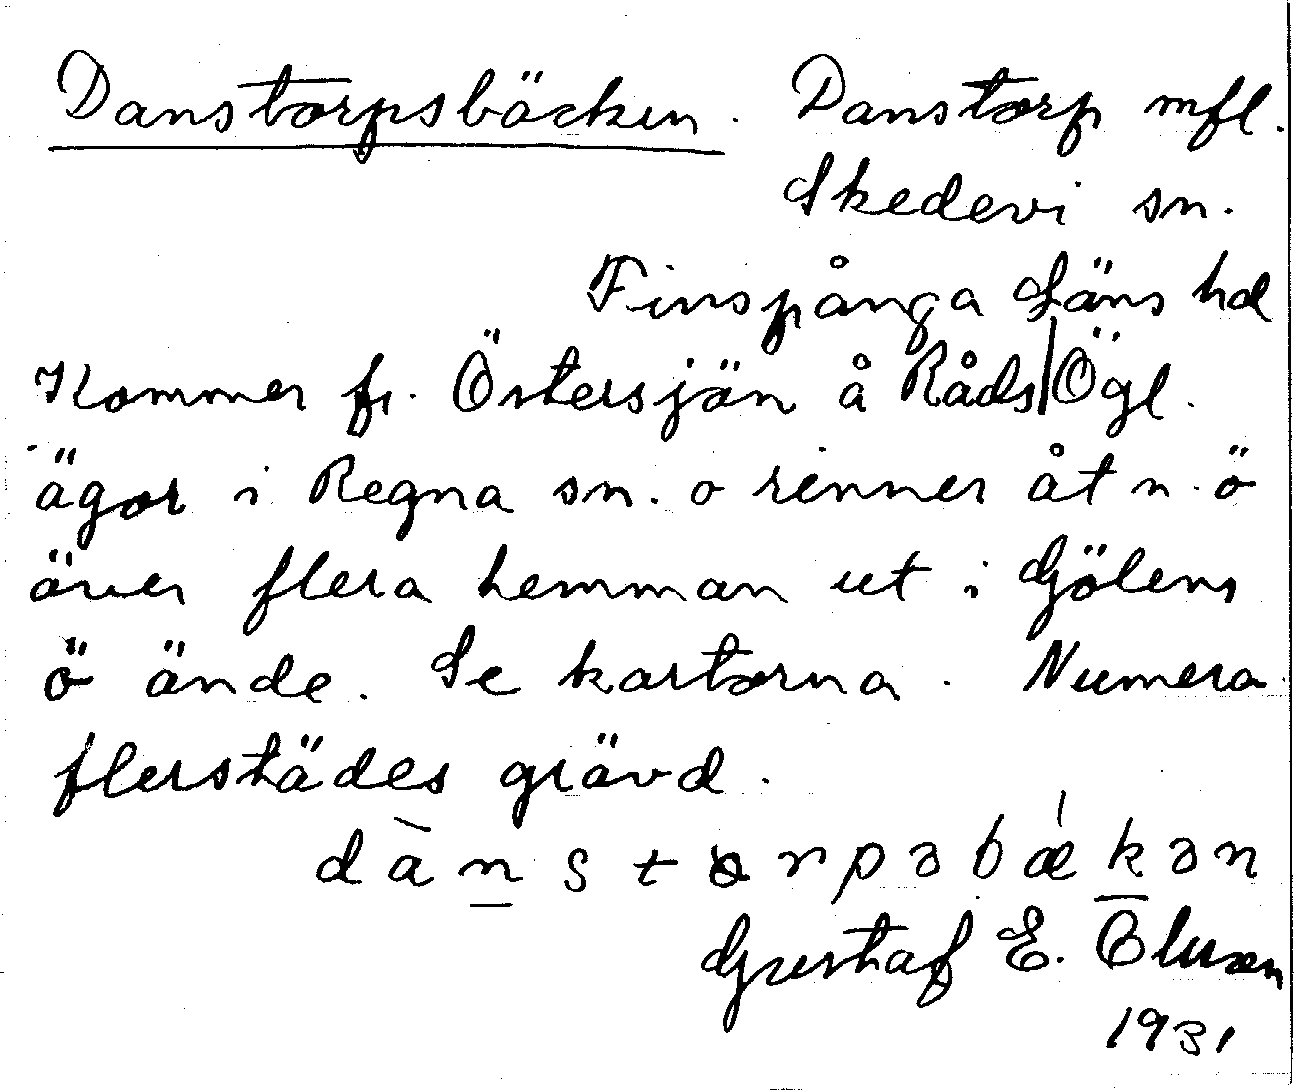 Danstorpsbäcken. Danstorp mfl.
Skedevi sn.
Finspånga Läns hd
Kommer fr. Östersjön å Råds/Ögl.
ägor i Regna sn. o rinner åt n. ö
över flera hemman ut i Gölens
ö ände. Se kartorna. Numera
flerstädes grävd.
dànstɒrpəbækən
Gustaf E.
1931